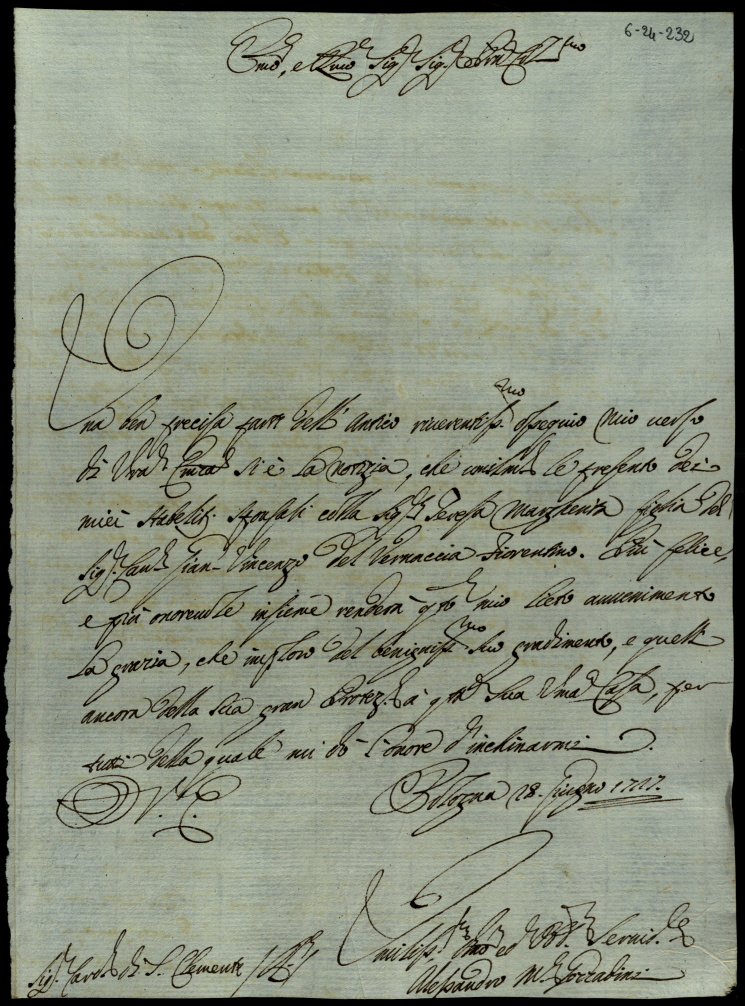 6-24-232
Emo, e Rmo Sig.r Sig.r e Pron Col.mo
Una ben precisa parte dell' antico riverentiss.mo ossequio mio verso
di Vra Emza si è la notizia, che umilm.te le presento dei
miei stabeliti sponsali colla Sig.ra Teresa Margarita figlia del
Sig.r Cav.re Gian-Vincenzo del Vernaccia Fiorentino. Più felice,
e più onorevole insieme renderà q.to mio lieto avvenimento
la grazia, che imploro del benigniss.mo suo gradimento, e quella
ancora della sua gran Protez.e à q.ta sua Casa, per
tutti della quale mi dò l'onore d'inchinarmi
D. V. E.
Bologna 28. Giugno 1727.
Umiliss.mo Dmo ed Obl.mo Servid.re
Sig.r Card.le di S. Clemente
Alessandro